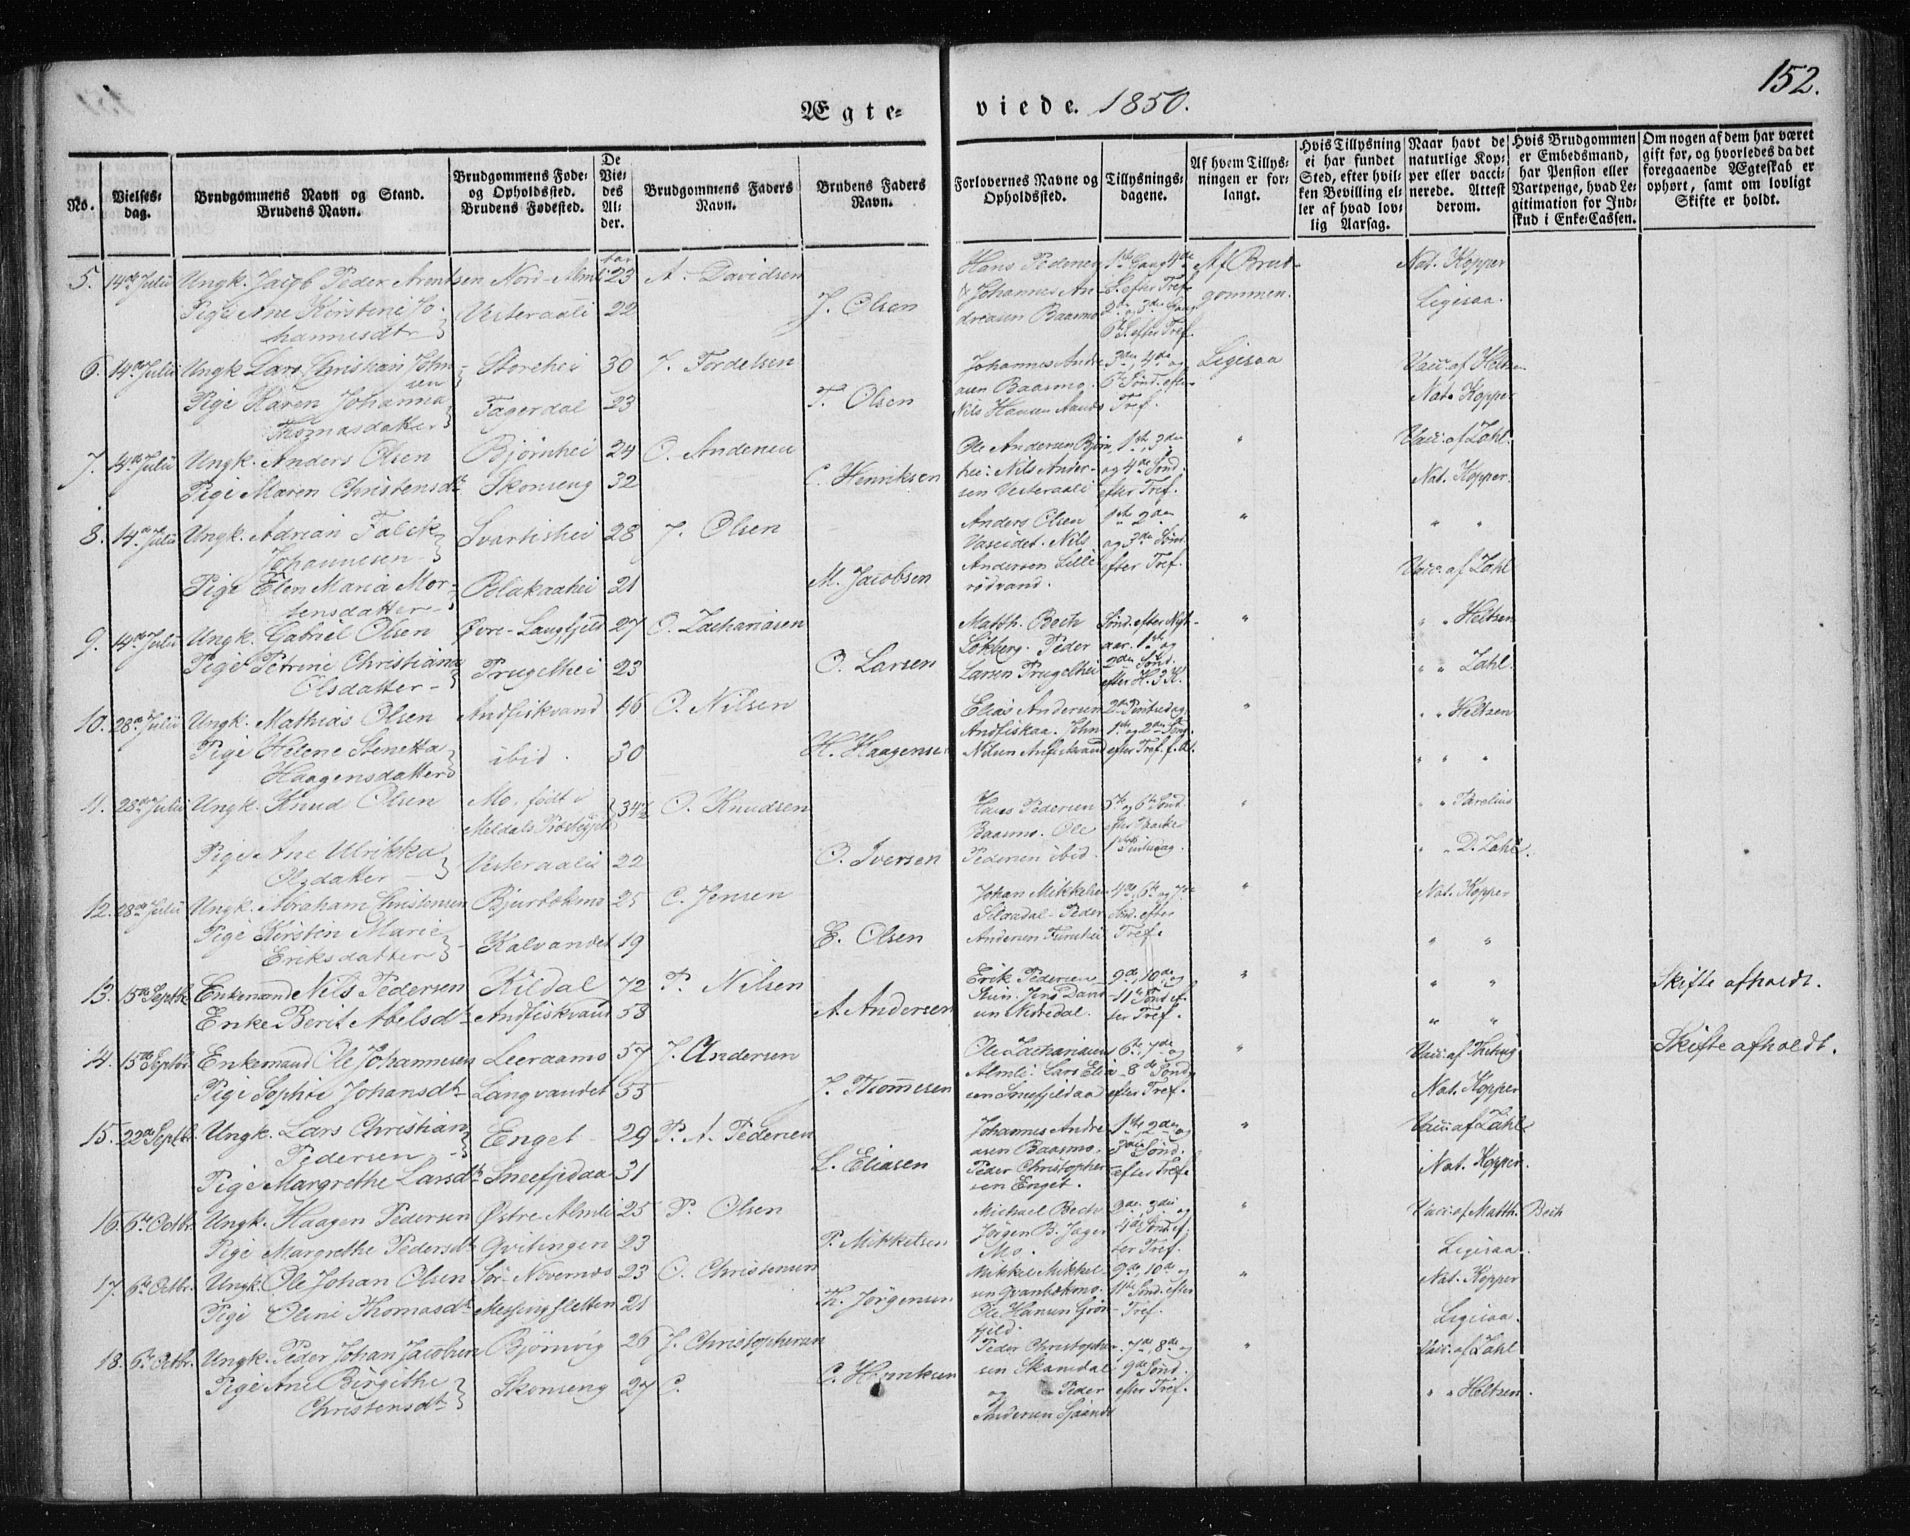 152.
Ægte= viede. 1850.
No. | Vielses-dag. | Brudgommens Navn og Stand. Brudens Navn. | Brudgommens Føde- og Opholdsted. Brudens Fødested. | De Viedes Alder. | Brudgommens Faders Navn. | Brudens Faders Navn. | Forlovernes Navne og Opholdsted. | Tillysnings-dagene. | Af hvem Tillysningen er forlangt. | Hvis Tillysning ei har fundet Sted, efter hvilken Bevilling eller af hvad lovlig Aarsag. | Naar havt de naturlige Kopper eller vaccinerede. Attest derom. | Hvis Brudgommen er Embedsmand, har Pension eller Vartpenge, hvad Legitimation for Indskud i Enke-Cassen. | Om nogen af dem har været gift før, og hvorledes da det foregaaende Ægteskab er ophørt, samt om lovligt Skifte er holdt.
5. 14de Julii Ungk. Jacob Peder Arentsen Nord-Almli 23 A. Davidsen Af Brudgommen. Nat. Kopper
Pige Ane Kirstine Johannesdtr Vesteraali 22 J. Olsen Johannes Andreasen Baasmo Ligesaa.
6. 14de Julii Ungk. Lars Christian Johnsen Storehei 30 J. Tordelsen Johannes Andreasen Baasmo. 3die, 4de og 6te Sønd. efter Tref. Ligesaa Vacc. af Heltzen
Pige Karen Johanna Thomasdatter Fagerdal 23 T. Olsen Nils Hansen Nat. Kopper
7. 14de Julii Ungk. Anders Olsen Bjørnhei 24 O. Andersen Ole Andersen Bjørnhei. Nils Andersen Vesteraali 1ste, 3die og 4de Sønd. efter Tref. " Vacc. af Zahl
Pige Maren Christensdtr Skonseng 32 C. Henriksen Nat. Kopper.
8. 14de Julii Ungk. Adrian Falck Johannesen Svartishei 28 J. Olsen Anders Olsen Nils Andersen Lillerødvand. 1ste, 2den og 3die Sønd. efter Tref. " " "
Pige Elen Maria Mortensdatter Blakaahei 21 M. Jacobsen Vacc. af Zahl
9. 14de Julii Ungk. Gabriel Olsen Øvre-Langfjeld 27 O. Zachariasen Matth. Bech Løkberg. Peder Larsen Trugelhei Sønd. efter Nytaar. 1ste og 2den Sønd. efter H. 3 K. " " " Heltzen
Pige Petrine Christiana Olsdatter Trugelhei 23 O. Larsen " " Zahl.
10. 28de Julii Ungk. Mathias Olsen Andfiskvand 46 O. Nilsen Elias Andersen Andfiskaa. John Nilsen " " " Heltzen
Pige Helene Stenetta Haagensdatter ibid. 30 H. Haagensen " " "
11. 28de Julii Ungk. Knud Olsen Mo. født i Meldals Præstegjeld 34½ O. Knudsen Hans Pedersen Baasmo. Ole Pedersen ibid. 5te og 6te Sønd. efter Paaske 1ste Pintsedag. "
Pige Ane Ulrikka Olsdatter Vesteraali 22 O. Iversen " " D. Zahl.
12. 28de Julii Ungk. Abraham Christensen Bjurbækmo 25 C. Jensen Johan Mikkelsen Peder Andersen 4de, 6te og 7de Sønd. efter Tref. " Nat. Kopper
Pige Kirsten Marie Eriksdatter Kalvandet 19 E. Olsen " "
13. 15de Septbr Enkemand Nils Pedersen Kildal 72 P. Nilsen Erik Pedersen Jens Davidsen Nedredal. 9de, 10de og 11te Sønd. efter Tref. " " " Skifte afholdt.
Enke Berit Abelsdtr Andfiskvand 58 A. Andersen " "
14. 15de Septbr Enkemand Ole Johannesen Leeraamo 57 J. Andersen Ole Zachariasen Almli. Lars Eliasen Sneefjeldaa 6te, 7de og 8de Sønd. efter Tref. " Skifte afholdt.
Pige Sophie Johansdtr Langvandet 55 J. Thommesen Nat. Kopper
15. 22de Septbr. Ungk. Lars Christian Pedersen Enget 29 P. A. Pedersen Johannes Andreasen Baasmo. Peder Christophersen Enget. 1ste, 2den og 3die Sønd. efter Tref. " Vacc. af Zahl
Pige Margrethe Larsdtr Sneefjeldaa 31 L. Eliasen Nat. Kopper.
16. 6te Octbr. Ungk. Haagen Pedersen Østre Almli 25 P. Olsen Michael Bech Jørgen B. Jager Mo. 2den, 3die og 4de Sønd. efter Tref. " Vacc. af Matth. Bech
Pige Margrethe Pedersdtr Qvitingen 23 P. Mikkelsen Ligesaa.
17. 6te Octbr. Ungk. Ole Johan Olsen Sør-Nævernæs 23 O. Christensen Mikkel Mikkelsen Ole Hansen Grønfjeld. 9de, 10de og 11te Sønd. efter Tref. " Nat. Kopper
Pige Oline Thomasdtr Messingsletten 21 Th. Jørgensen Ligesaa.
18. 6te Octbr. Ungk. Peder Johan Jacobsen Bjørnvig 26 J. Christophersen Peder Christophersen Skamdal og Peder Andersen 7de, 8de og 9de Sønd. efter Tref. " Vacc. af Zahl
Pige Ane Birgithe Christensdtr Skonseng 27 C. C. Henriksen " " Heltzen.